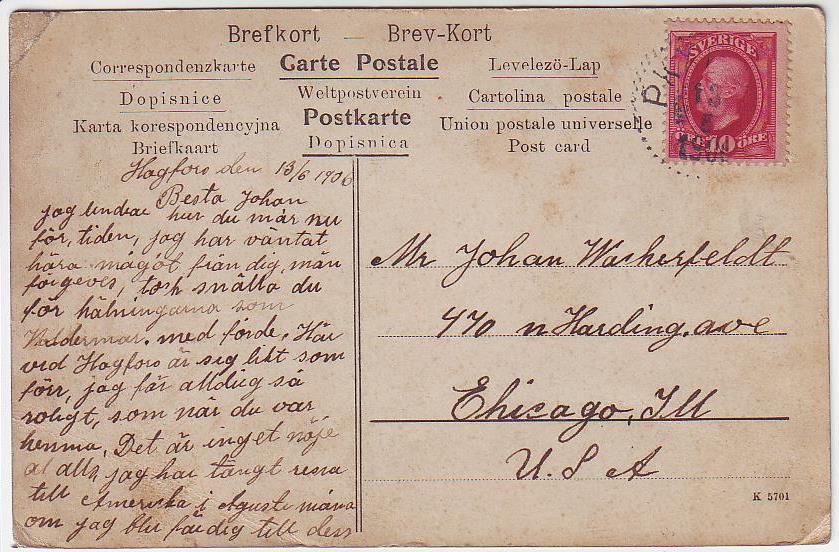 Brefkort — Brev-Kort
Correspondenzkarte Carte Postale Levelezö-Lap
Dopisnice Weltpostverein Cartolina postale
Karta korespondencyjna Postkarte Union postale universelle
Briefkaart Dopisnica Post card
SVERIGE
10 ÖRE
13
6
Hagfors den 13/6 1906
Besta Johan
jag undrar hur du mår nu
för, tiden, jag har väntat
höra något från dig, män
förgeves, tack snälla du
för hälningarna som
Valdermar. med förde. Här
ved Hagfors är sig likt som
förr, jag får alldrig så
roligt, som när du var
hemma, Det är inget nöje
at alls jag har tängt resa
till Amerika i Aguste måna
om jag blir färdig till dess
Mr Johan Wackerfeldt
470 n Harding. ave
Chicago, Ill
U. S A
K 5701